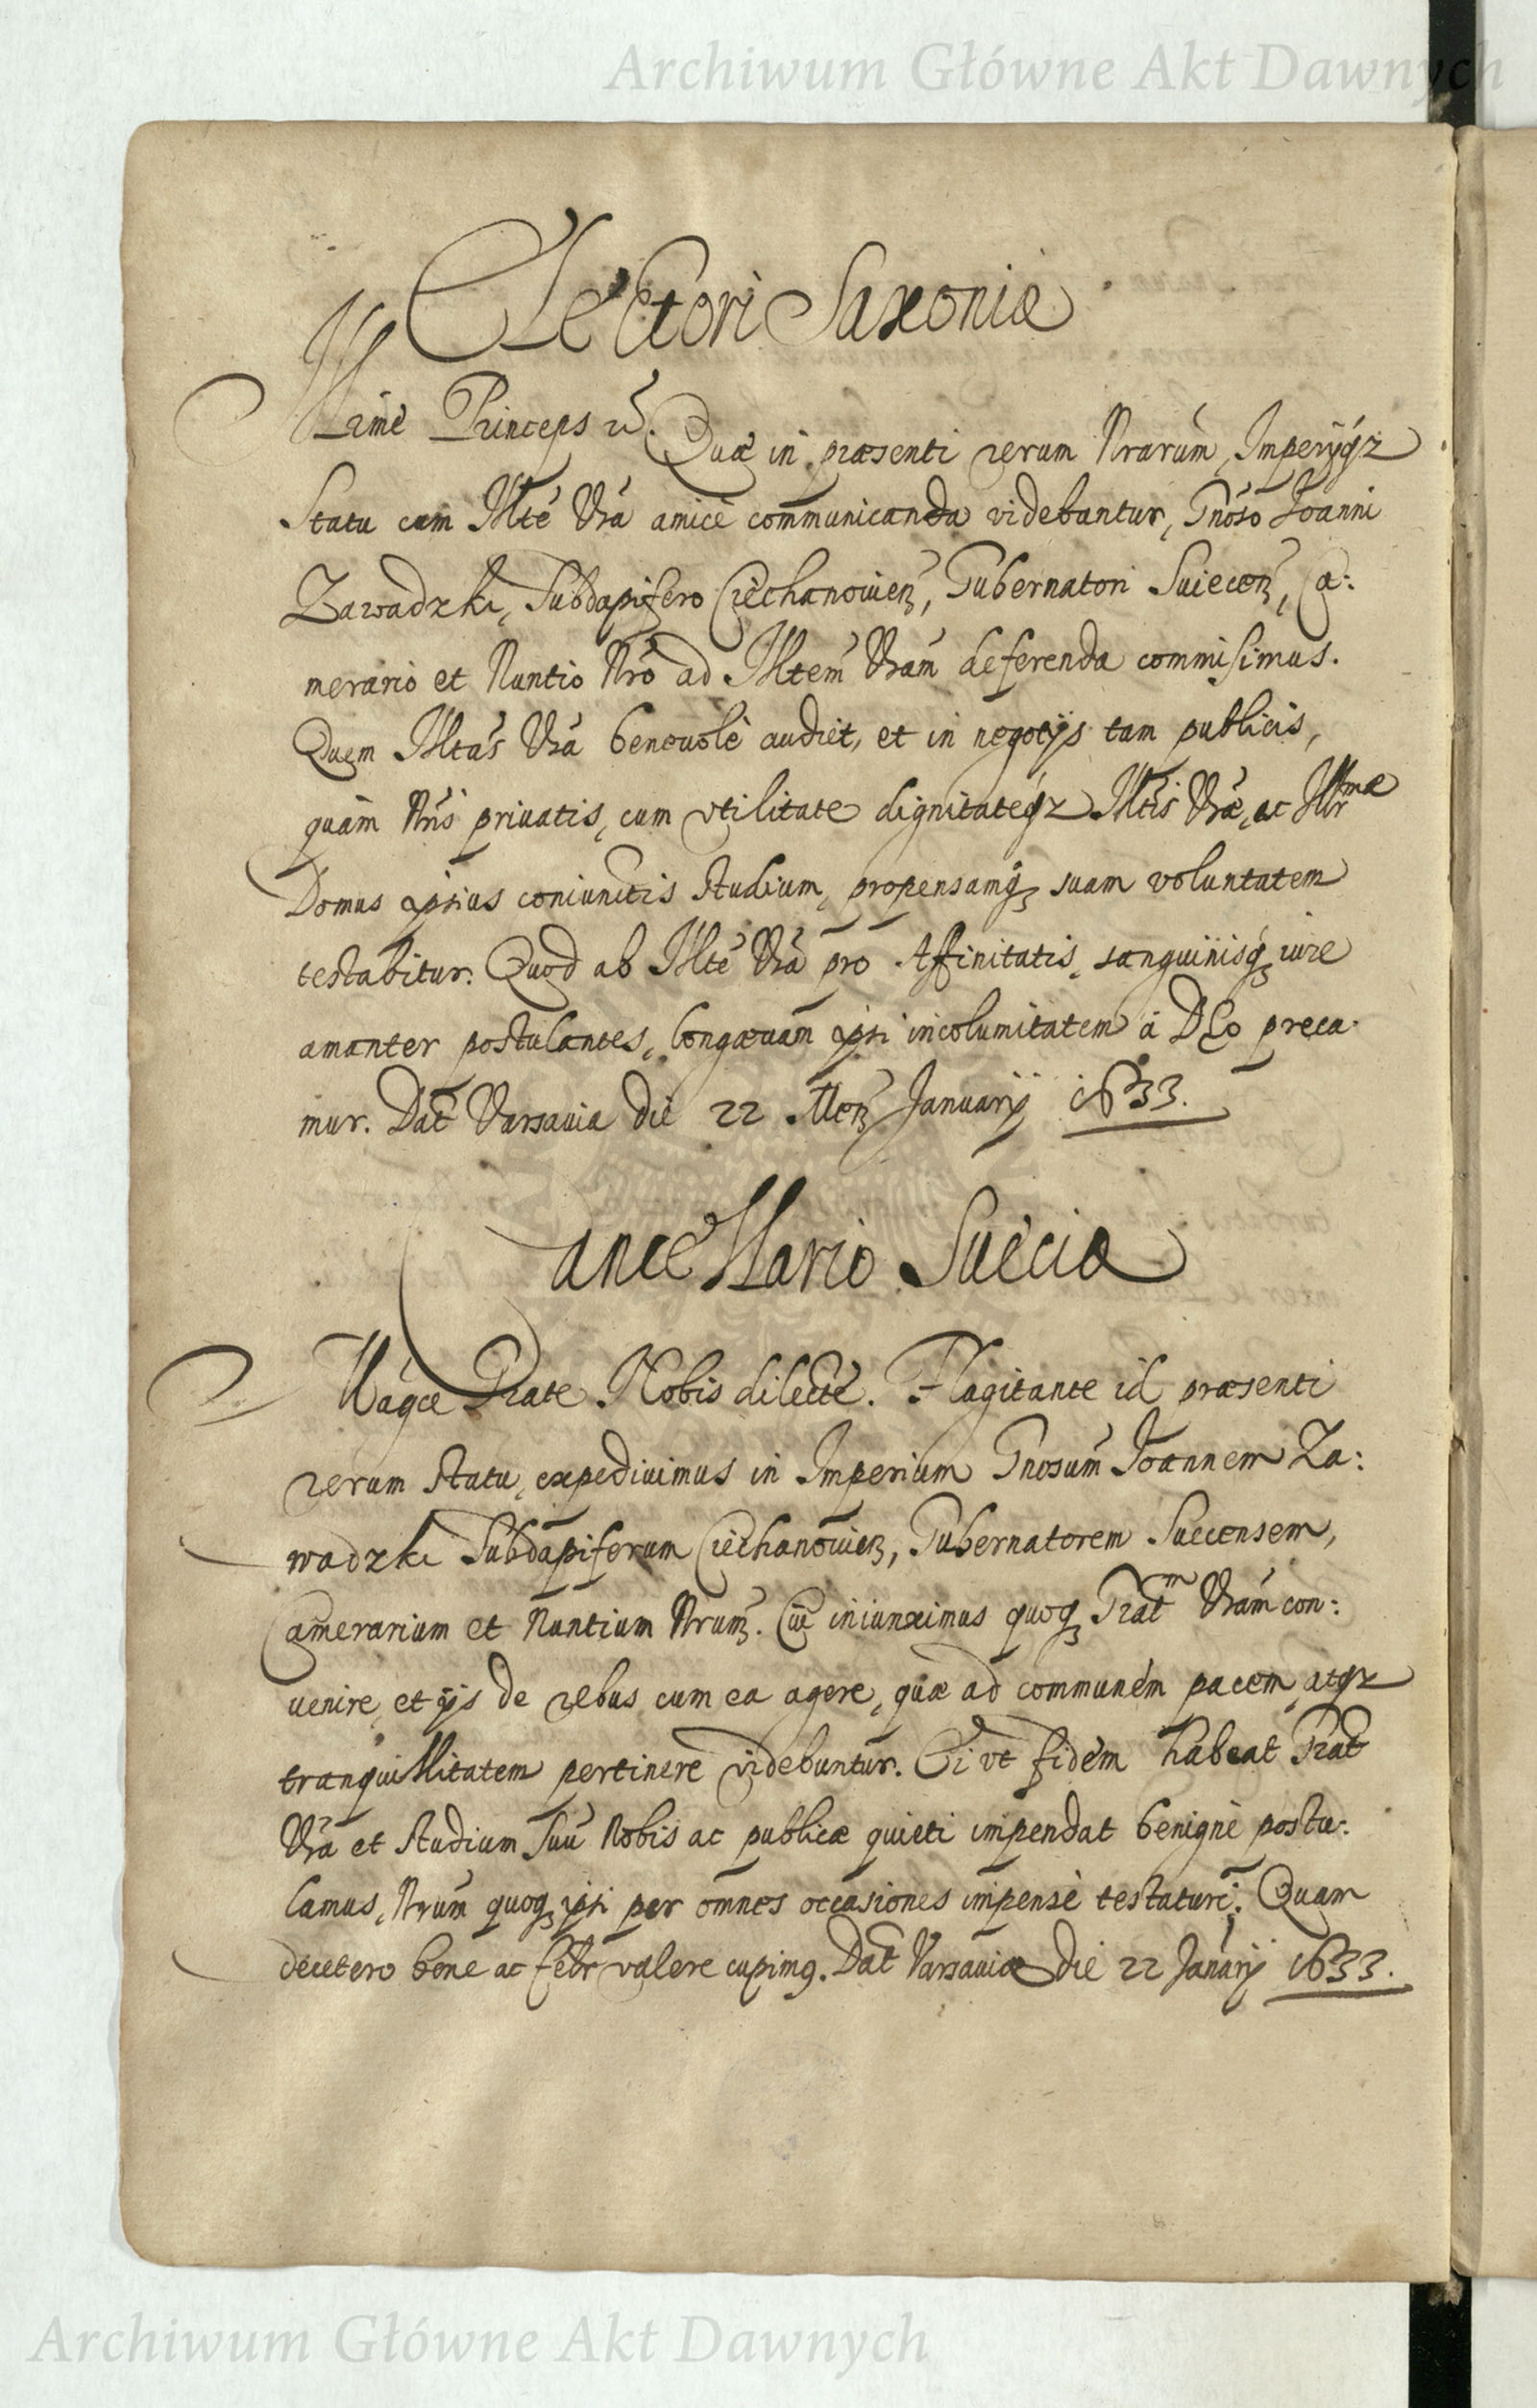 Archiwum Główne Akt Dawnych
Electori Saxoniæ
Illme Princeps etc. Quæ in præsenti rerum Nrarum, Imperijqz
statu cum Illte Vrã amicè communicanda videbantur, Gnoso Joanni
Zawadzki, Subdapifero Ciechanouien, Gubernatori Suiecen, Ca:
merario et Nuntio Nro ad Illtem Vram deferenda commisimus.
Quem Illtas Vra beneuolè audiet, et in negotijs tam publicis,
quàm Nris priuatis, cum vtilitate dignitateqz Illtis Vræ, ac Illrmæ
Domus ipsius coniunctis studium, propensamq suam voluntatem
testabitur. Quod ab Illte Vrã pro Affinitatis, sanguinisq iure
amanter postulantes, longæuam ipsi incolumitatem à DEo preca-
mur. Dat Varsauiæ die 22 Men Januarij 1633.
Cancellario Sueciæ
Magce Grate Nobis dilecte. Flagitante id præsenti
rerum statu, expediuimus in Imperium Gnosum Joannem Za:
wadzki Subdapiferum Ciechanouien, Gubernatorem Suecensem,
Camerarium et Nuntium Nrum. Cui iniunximus quoq Gratm Vram con:
uenire, et ijs de rebus cum ea agere, quæ ad communem pacem, atqz
tranquillitatem pertinere videbuntur. Ei vt fidem habeat Grat
Vra et studium suũ Nobis ac publicæ quieti impendat benignè postu:
lamus, Nrum quoq ipsi per omnes occasiones impensè testaturi. Quam
decetero bene ac felr valere cupimq. Dat Varsauiæ die 22 Januarij 1633.
Archiwum Główne Akt Dawnych